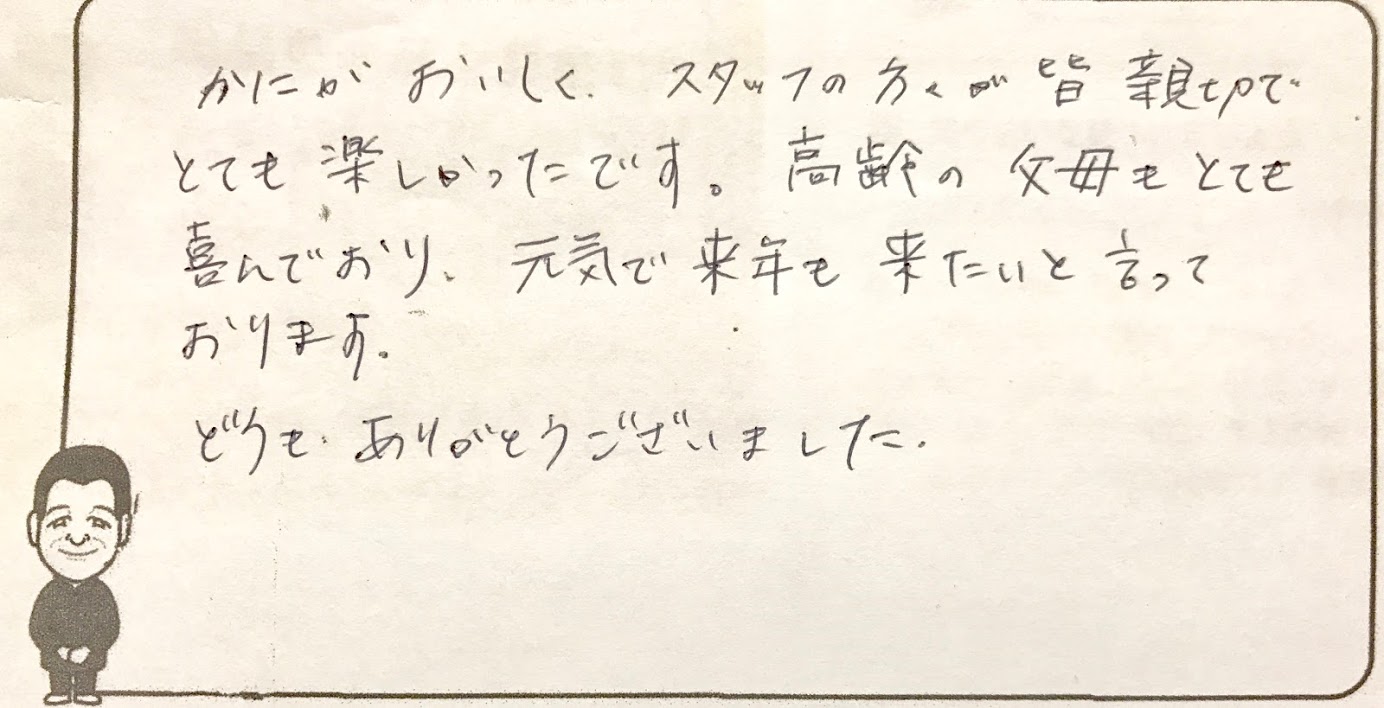 かにがおいしく、スタッフの方々が皆親切で
とても楽しかったです。高齢の父母もとても
喜んでおり、元気で来年も来たいと言って
おります。
どうもありがとうございました。